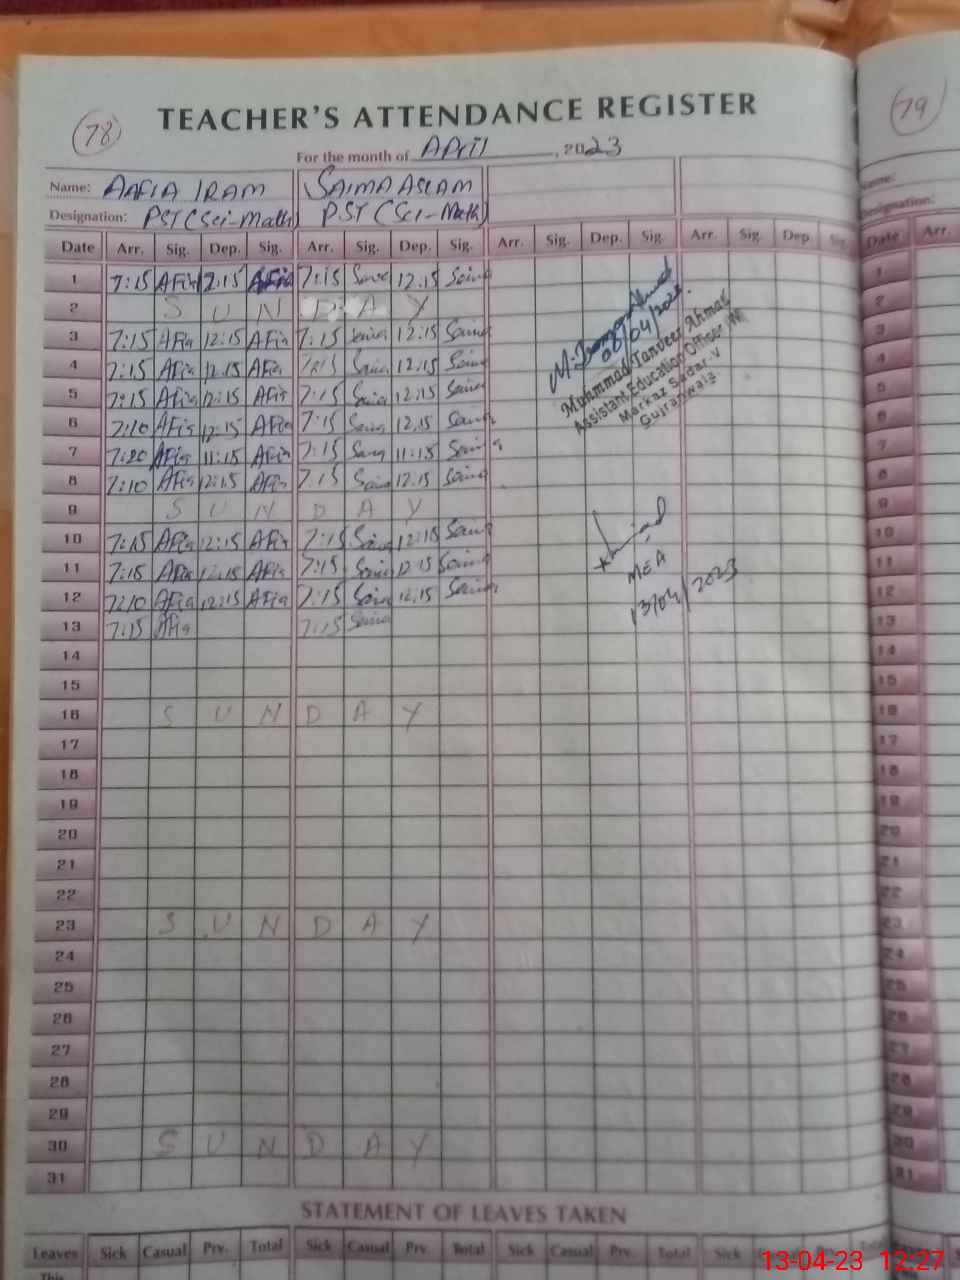 78
TEACHER'S ATTENDANCE REGISTER
79
For the month of April, 2023
Name: AAFIA IRAM SAIMA ASLAM
Designation: PST (Sci-Math) PST (Sci-Math)
Date Arr. Sig. Dep. Sig. Arr. Sig. Dep. Sig. Arr. Sig. Dep. Sig. Arr. Sig. Dep. Sig. Date Arr.
1 7:15 AFia 12:15 AFia 7:15 Saima 12.15 Saima 1
2 S U N D A Y 2
3 7:15 AFia 12:15 AFia 7:15 Saima 12.15 Saima 3
4 7:15 AFia 12.15 AFia 7:15 Saima 12.15 Saima 4
5 7:15 AFia 12:15 AFia 7:15 Saima 12.15 Saima 5
6 7:10 AFia 12:15 AFia 7:15 Saima 12.15 Saima 6
7 7:20 AFia 11:15 AFia 7:15 Saima 11:15 Saima 7
8 7:10 AFia 12:15 AFia 7:15 Saima 12.15 Saima 8
08/04/2023.
Muhammad Tanveer Ahmad
Assistant Education Officer (M)
Markaz Sadar-V
Gujranwala
9 S U N D A Y 9
10 7:15 AFia 12:15 AFia 7:15 Saima 12:15 Saima 10
11 7:15 AFia 12:15 AFia 7:15 Saima 12.15 Saima 11
12 7:10 AFia 12:15 AFia 7:15 Saima 12.15 Saima 12
13 7:15 AFia 7:15 Saima 13
MEA
13/04/2023
14 14
15 15
16 S U N D A Y 16
17 17
18 18
19 19
20 20
21 21
22 22
23 S U N D A Y 23
24 24
25 25
26 26
27 27
28 28
29 29
30 S U N D A Y 30
31 31
STATEMENT OF LEAVES TAKEN
Leaves Sick Casual Prv. Total Sick Casual Prv. Total Sick Casual Prv. Total Sick Casual Prv. Total
This
13-04-23 12:27